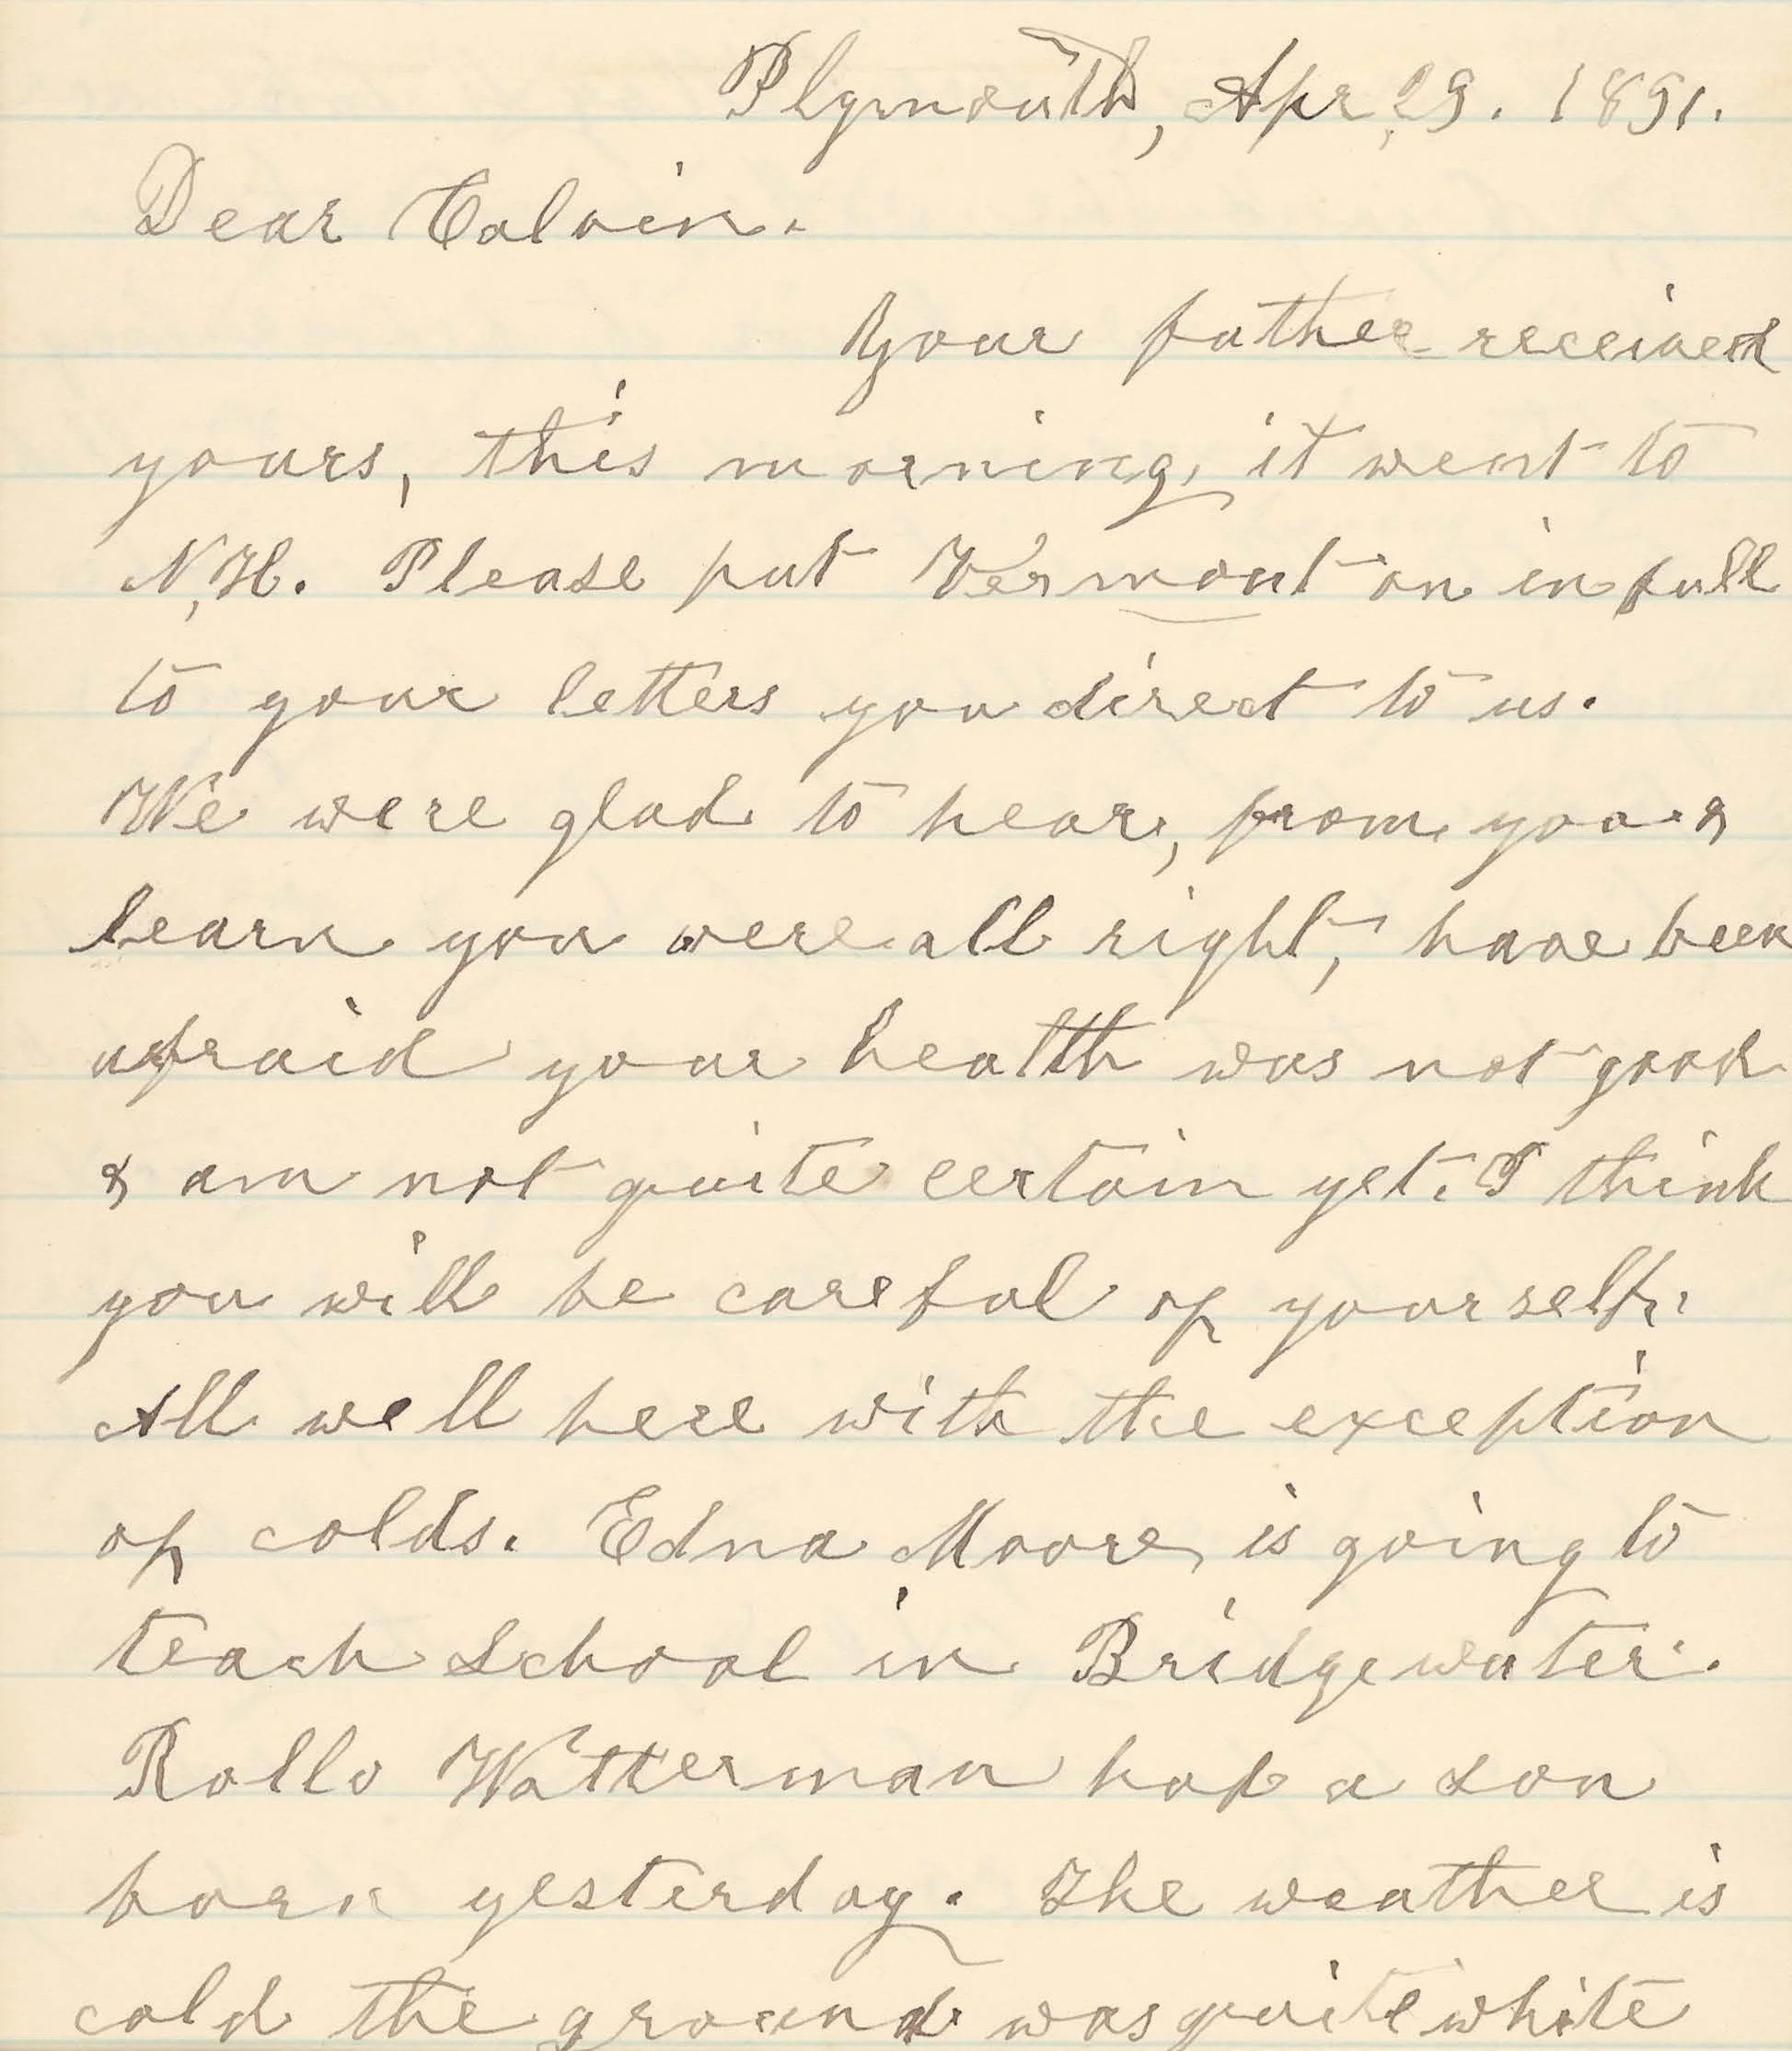 Plymouth, Apr, 29. 1891.
Dear Calvin.
Your father received
yours, this morning, it went to
N,H. Please put Vermont on in full
to your letters you direct to us.
We were glad to hear, from you &
learn you were all right, have been
afraid your health was not good
& am not quite certain yet. I think
you will be careful of yourself.
All well here with the exception
of colds. Edna Moore, is going to
teach School in Bridgewater.
Rollo Watterman had a son
born yesterday. The weather is
cold the ground was quite white